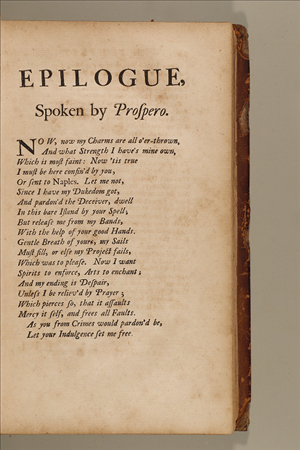 EPILOGUE,
Spoken by Proſpero.
NOW, now my Charms are all o'er-thrown,
And what Strength I have's mine own,
Which is moſt faint: Now 'tis true
I muſt be here confin'd by you,
Or ſent to Naples. Let me not,
Since I have my Dukedom got,
And pardon'd the Deceiver, dwell
In this bare Iſland by your Spell,
But releaſe me from my Bands,
With the help of your good Hands.
Gentle Breath of yours, my Sails
Muſt fill, or elſe my Project fails,
Which was to pleaſe. Now I want
Spirits to enforce, Arts to enchant;
And my ending is Deſpair,
Unleſs I be reliev'd by Prayer;
Which pierces ſo, that it aſſaults
Mercy it ſelf, and frees all Faults.
As you from Crimes would pardon'd be,
Let your Indulgence ſet me free.